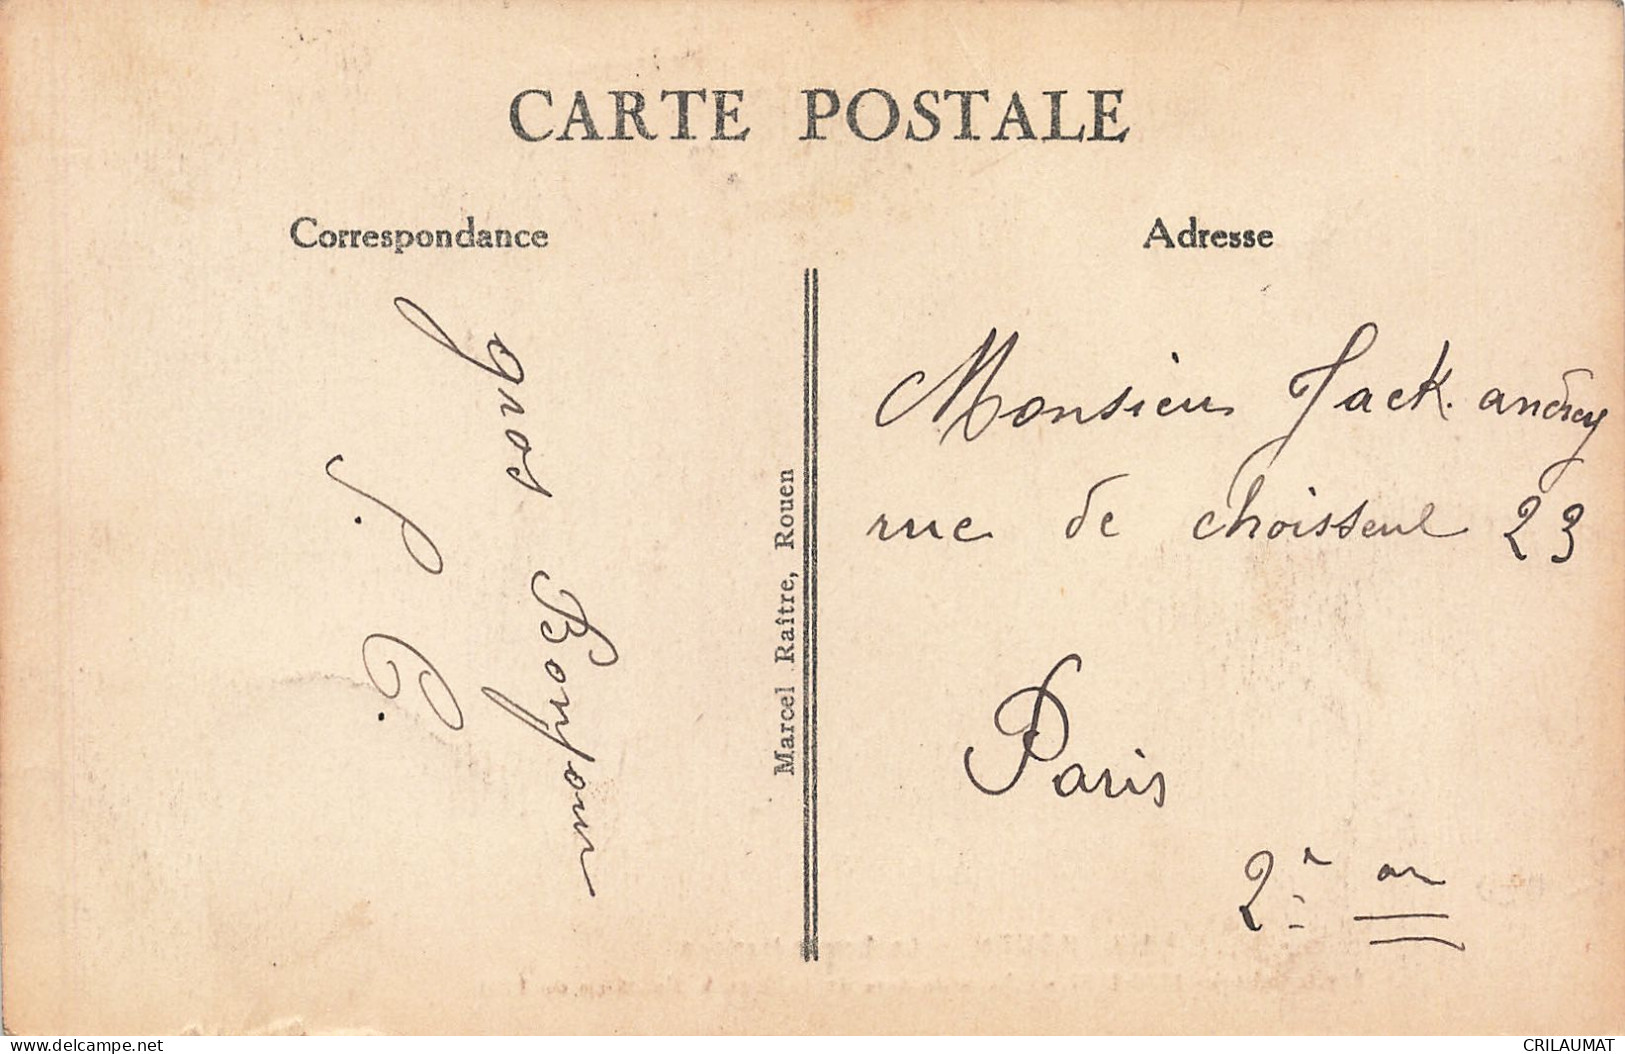 CARTE POSTALE
Correspondance
gros Bonjour
J. C.
Marcel Raître, Rouen
Adresse
Monsieur Jack. andrey
rue de choisseul 23
Paris
2e ar
delcampe.net
CRILAUMAT